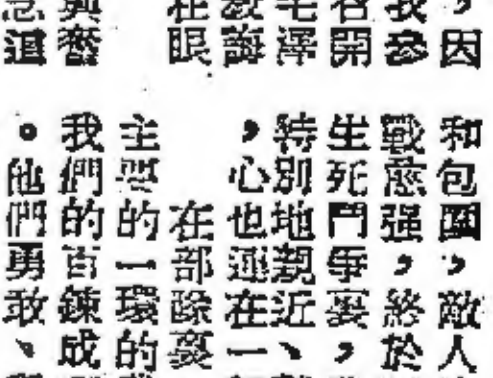 ，因
我參
召開
毛澤
教誨
在眼
興奮
和包圍，敵人
戰愈强，終於
生死鬥爭裏，
特別地親近、
，心也連在一
在部隊裏
主要的一環的
我們的百鍊成
。他們勇敢、